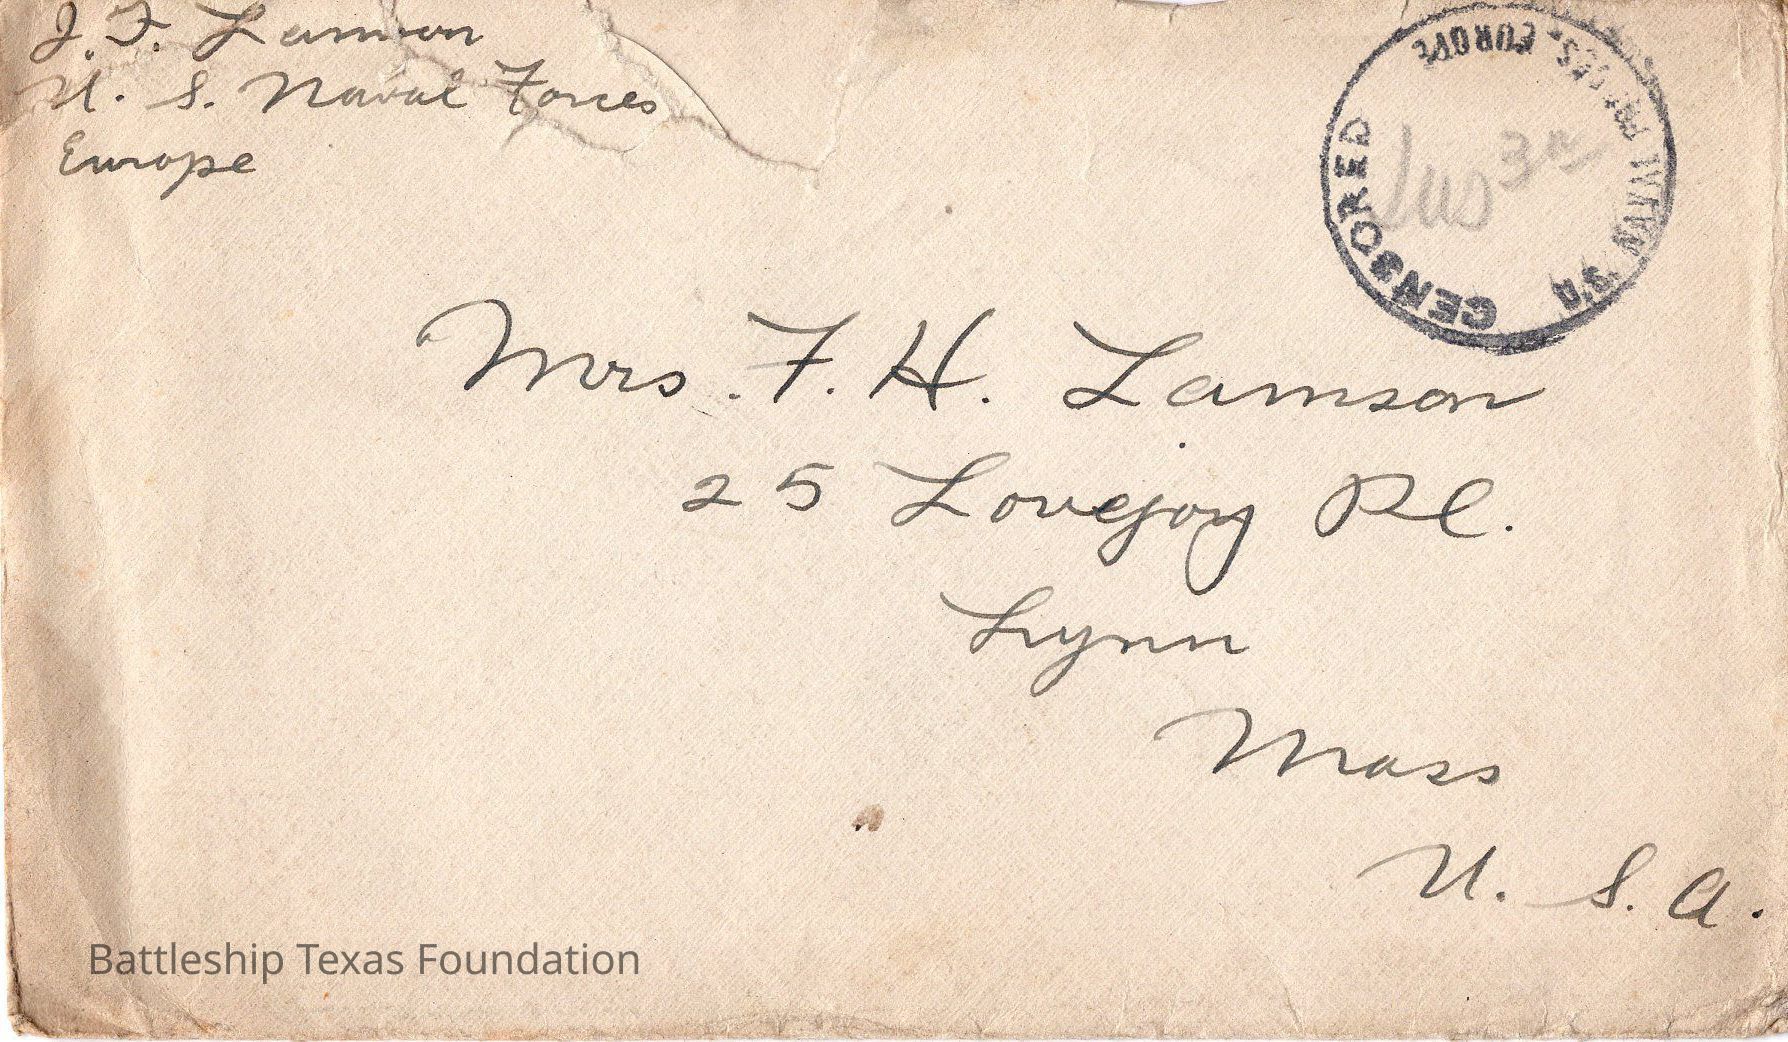 J. F. Lamson
U. S. Naval Forces
Europe
CENSORED
NAVAL FORCES EUROPE
3
Mrs. F. H. Lamson
25 Lovejoy Pl.
Lynn
Mass
U. S. A.
Battleship Texas Foundation